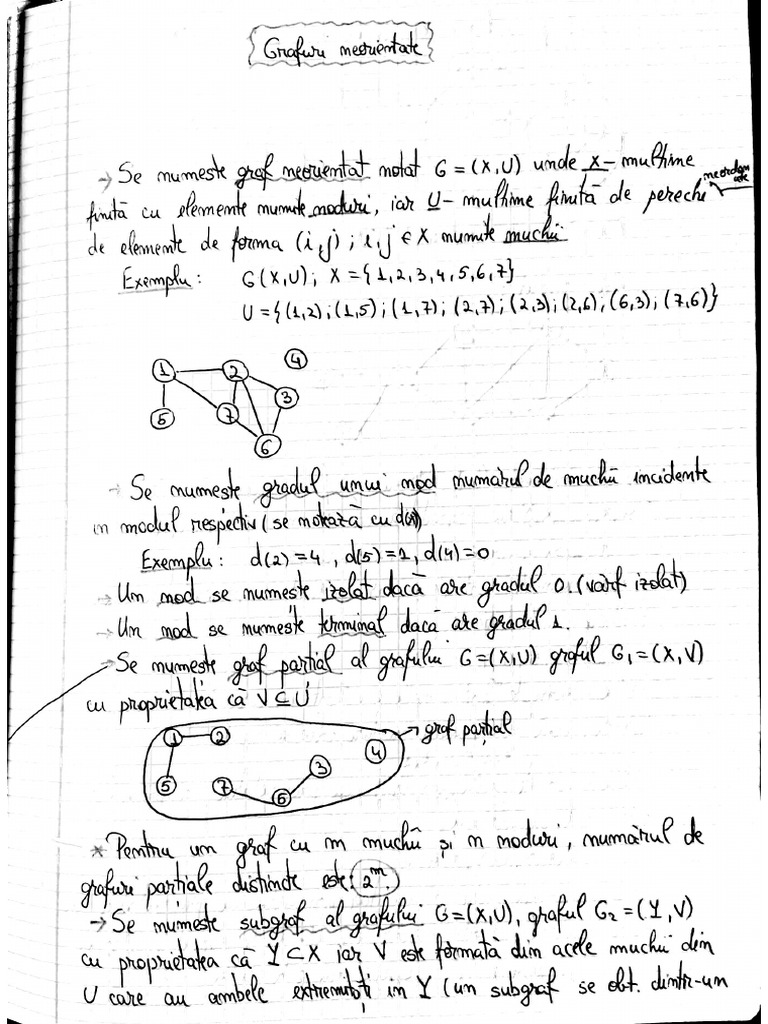 Grafuri neorientate
→ Se numeste graf neorientat notat G = (X,U) unde X - mulțime
finită cu elemente numite noduri, iar U - mulțime finită de perechi neordonate
de elemente de forma (i,j) ; i,j ∈ X numite muchii
Exemplu: G(X,U); X = {1,2,3,4,5,6,7}
U = {(1,2); (1,5); (1,7); (2,7); (2,3); (2,6); (6,3); (7,6)}
1 2 4
3
5 7
6
→ Se numeste gradul unui nod numărul de muchii incidente
in nodul respectiv (se notează cu d(x))
Exemplu: d(2)=4, d(5)=1, d(4)=0
→ Un nod se numeste izolat dacă are gradul 0. (vârf izolat)
→ Un nod se numeste terminal dacă are gradul 1.
→ Se numeste graf parțial al grafului G=(X,U) graful G₁=(X,V)
cu proprietatea că V⊆U
→ graf parțial
1 2
4
3
5 7
6
* Pentru un graf cu m muchii și n noduri, numărul de
grafuri parțiale distincte este: 2ᵐ.
→ Se numeste subgraf al grafului G=(X,U), graful G₂=(Y,V)
cu proprietatea că Y⊂X iar V este formată din acele muchii din
U care au ambele extremități in Y (un subgraf se obt. dintr-un